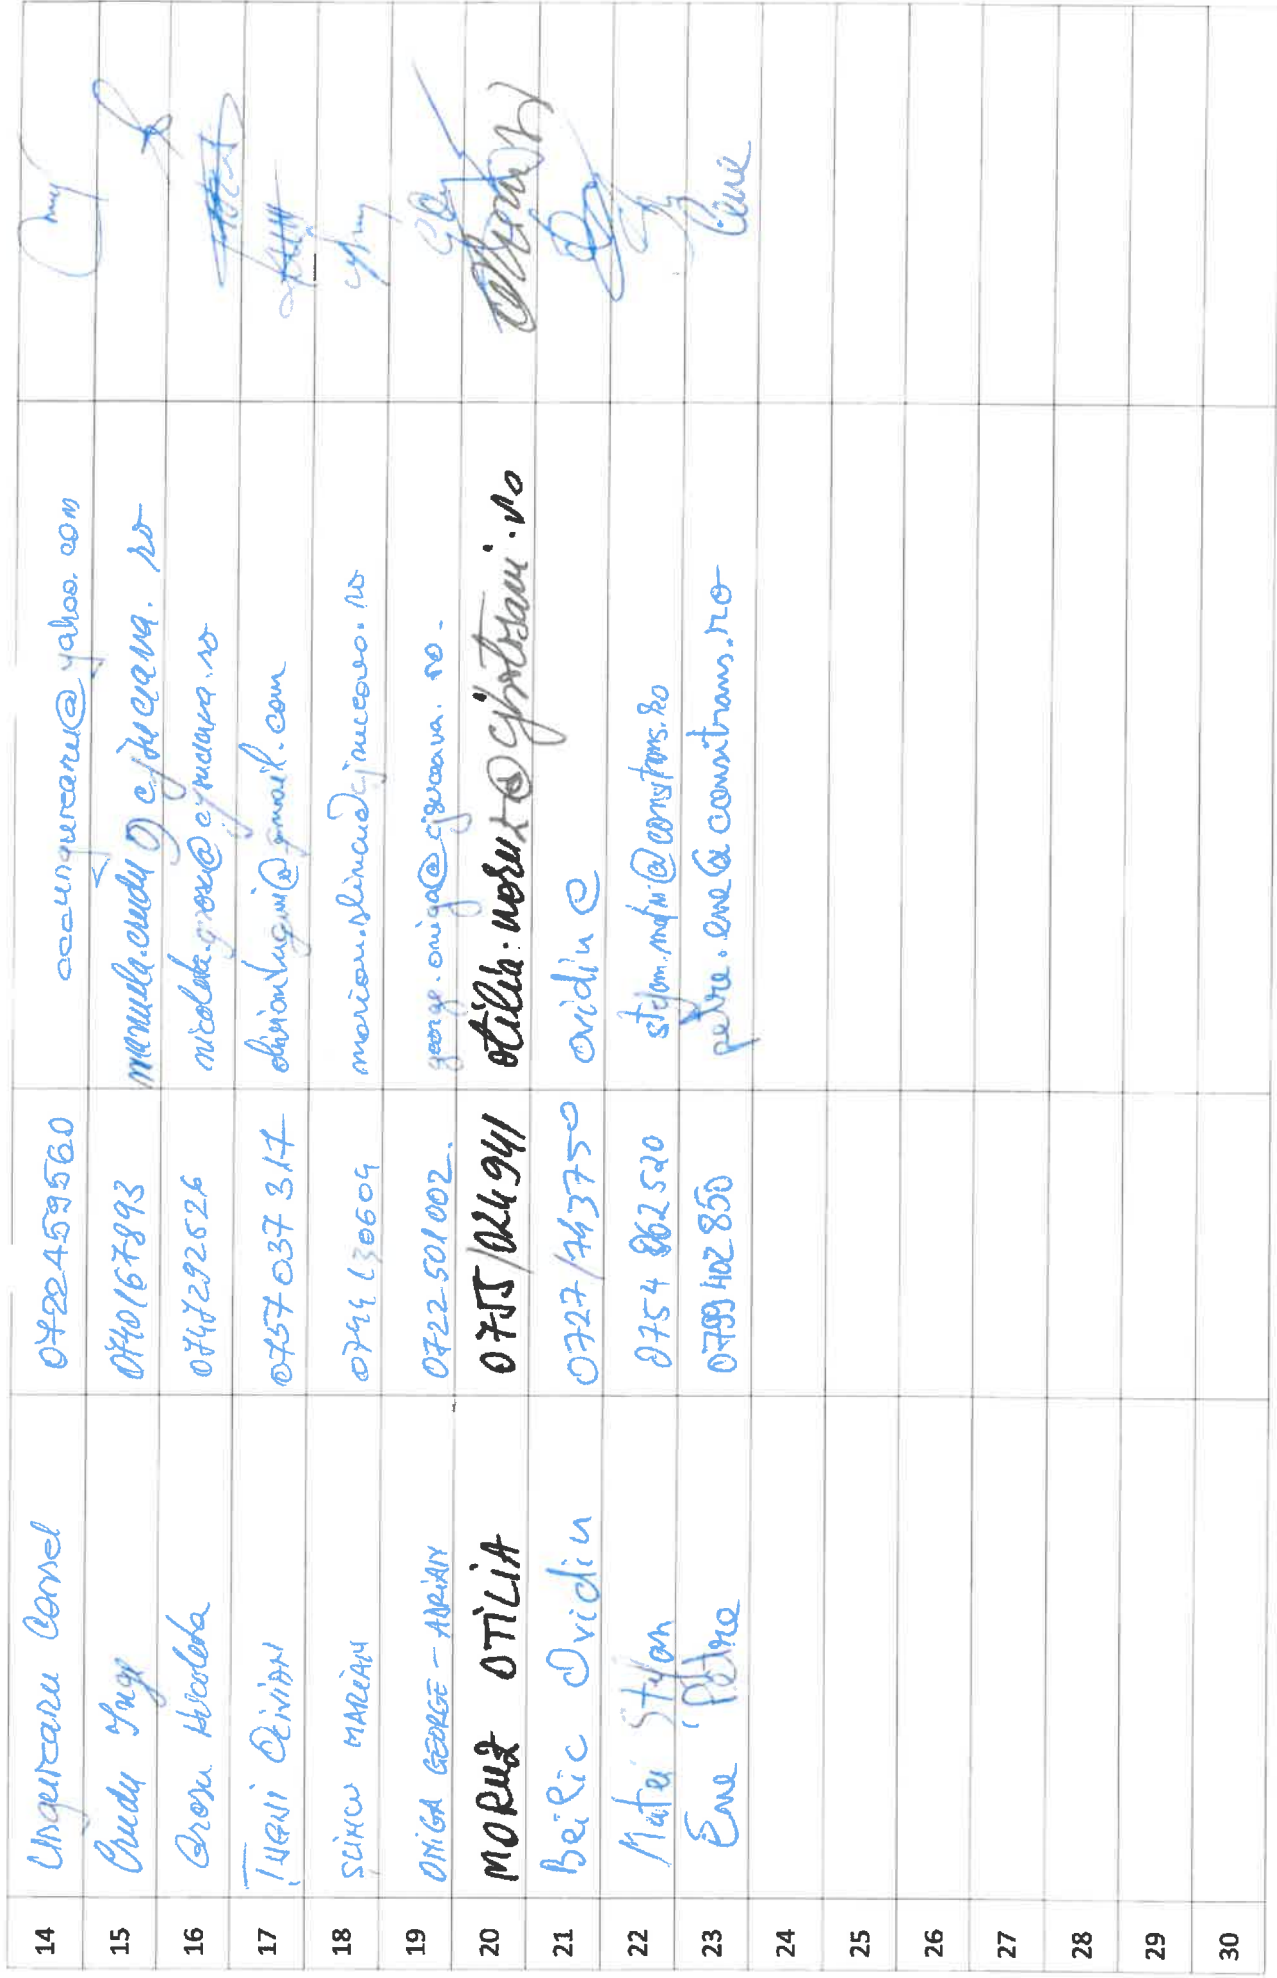 14 Ungureanu Cornel 0722459560 ccungureanu@yahoo.com
15 Crudu 0740167893 manuela.crudu@cjsuceava.ro
16 Grosu Nicoleta 0747292626 nicoleta.grosu@cjsuceava.ro
17 Țugui Olivian 0757037317 oliviantugui@gmail.com
18 SLINCU MARIAN marian.slincu@cjsuceava.ro
19 ONIGA GEORGE-ADRIAN 0722501002. george.oniga@cjsuceava.ro.
20 MORUZ OTILIA 0755/024941 otilia.moruz@cjbotosani.ro
21 Beilic Ovidiu 0727/743750 ovidiu@
22 Matei Stefan 0754 862520 stefan.matei@consitrans.ro
23 Ene Petre 0799402850 petre.ene@consitrans.ro Ene
24
25
26
27
28
29
30